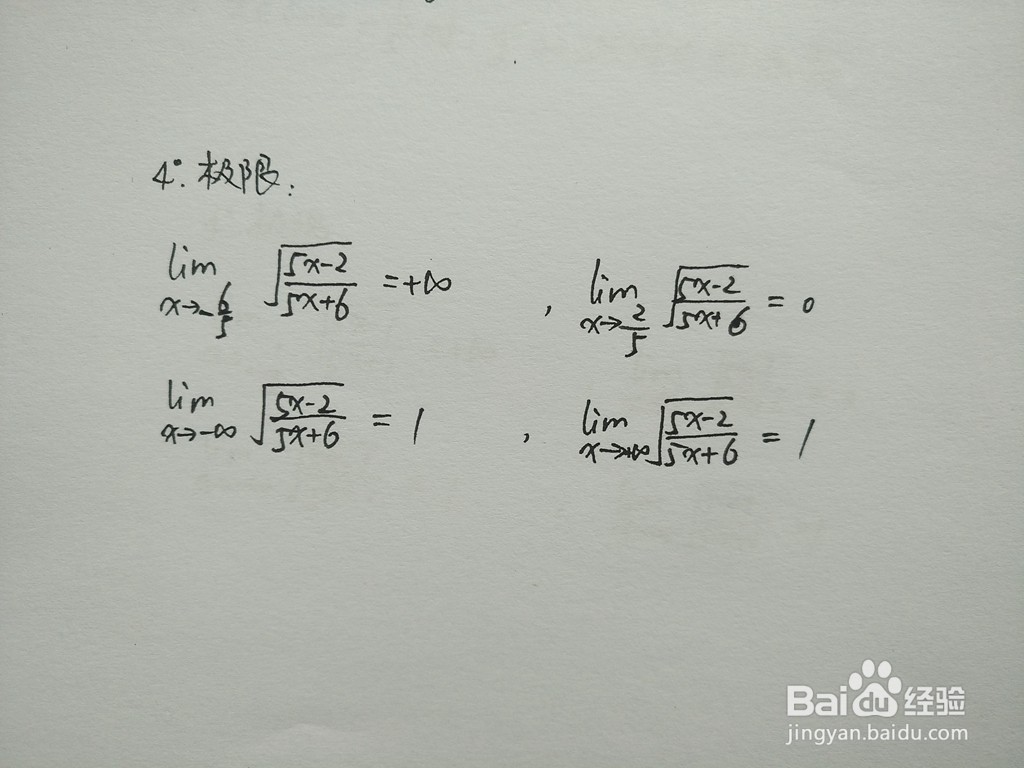 4°. 极限:
lim x→-6/5 √(5x-2)/(5x+6) = +∞ , lim x→2/5 √(5x-2)/(5x+6) = 0
lim x→-∞ √(5x-2)/(5x+6) = 1 , lim x→+∞ √(5x-2)/(5x+6) = 1
Bai 经验
jingyan.baidu.com